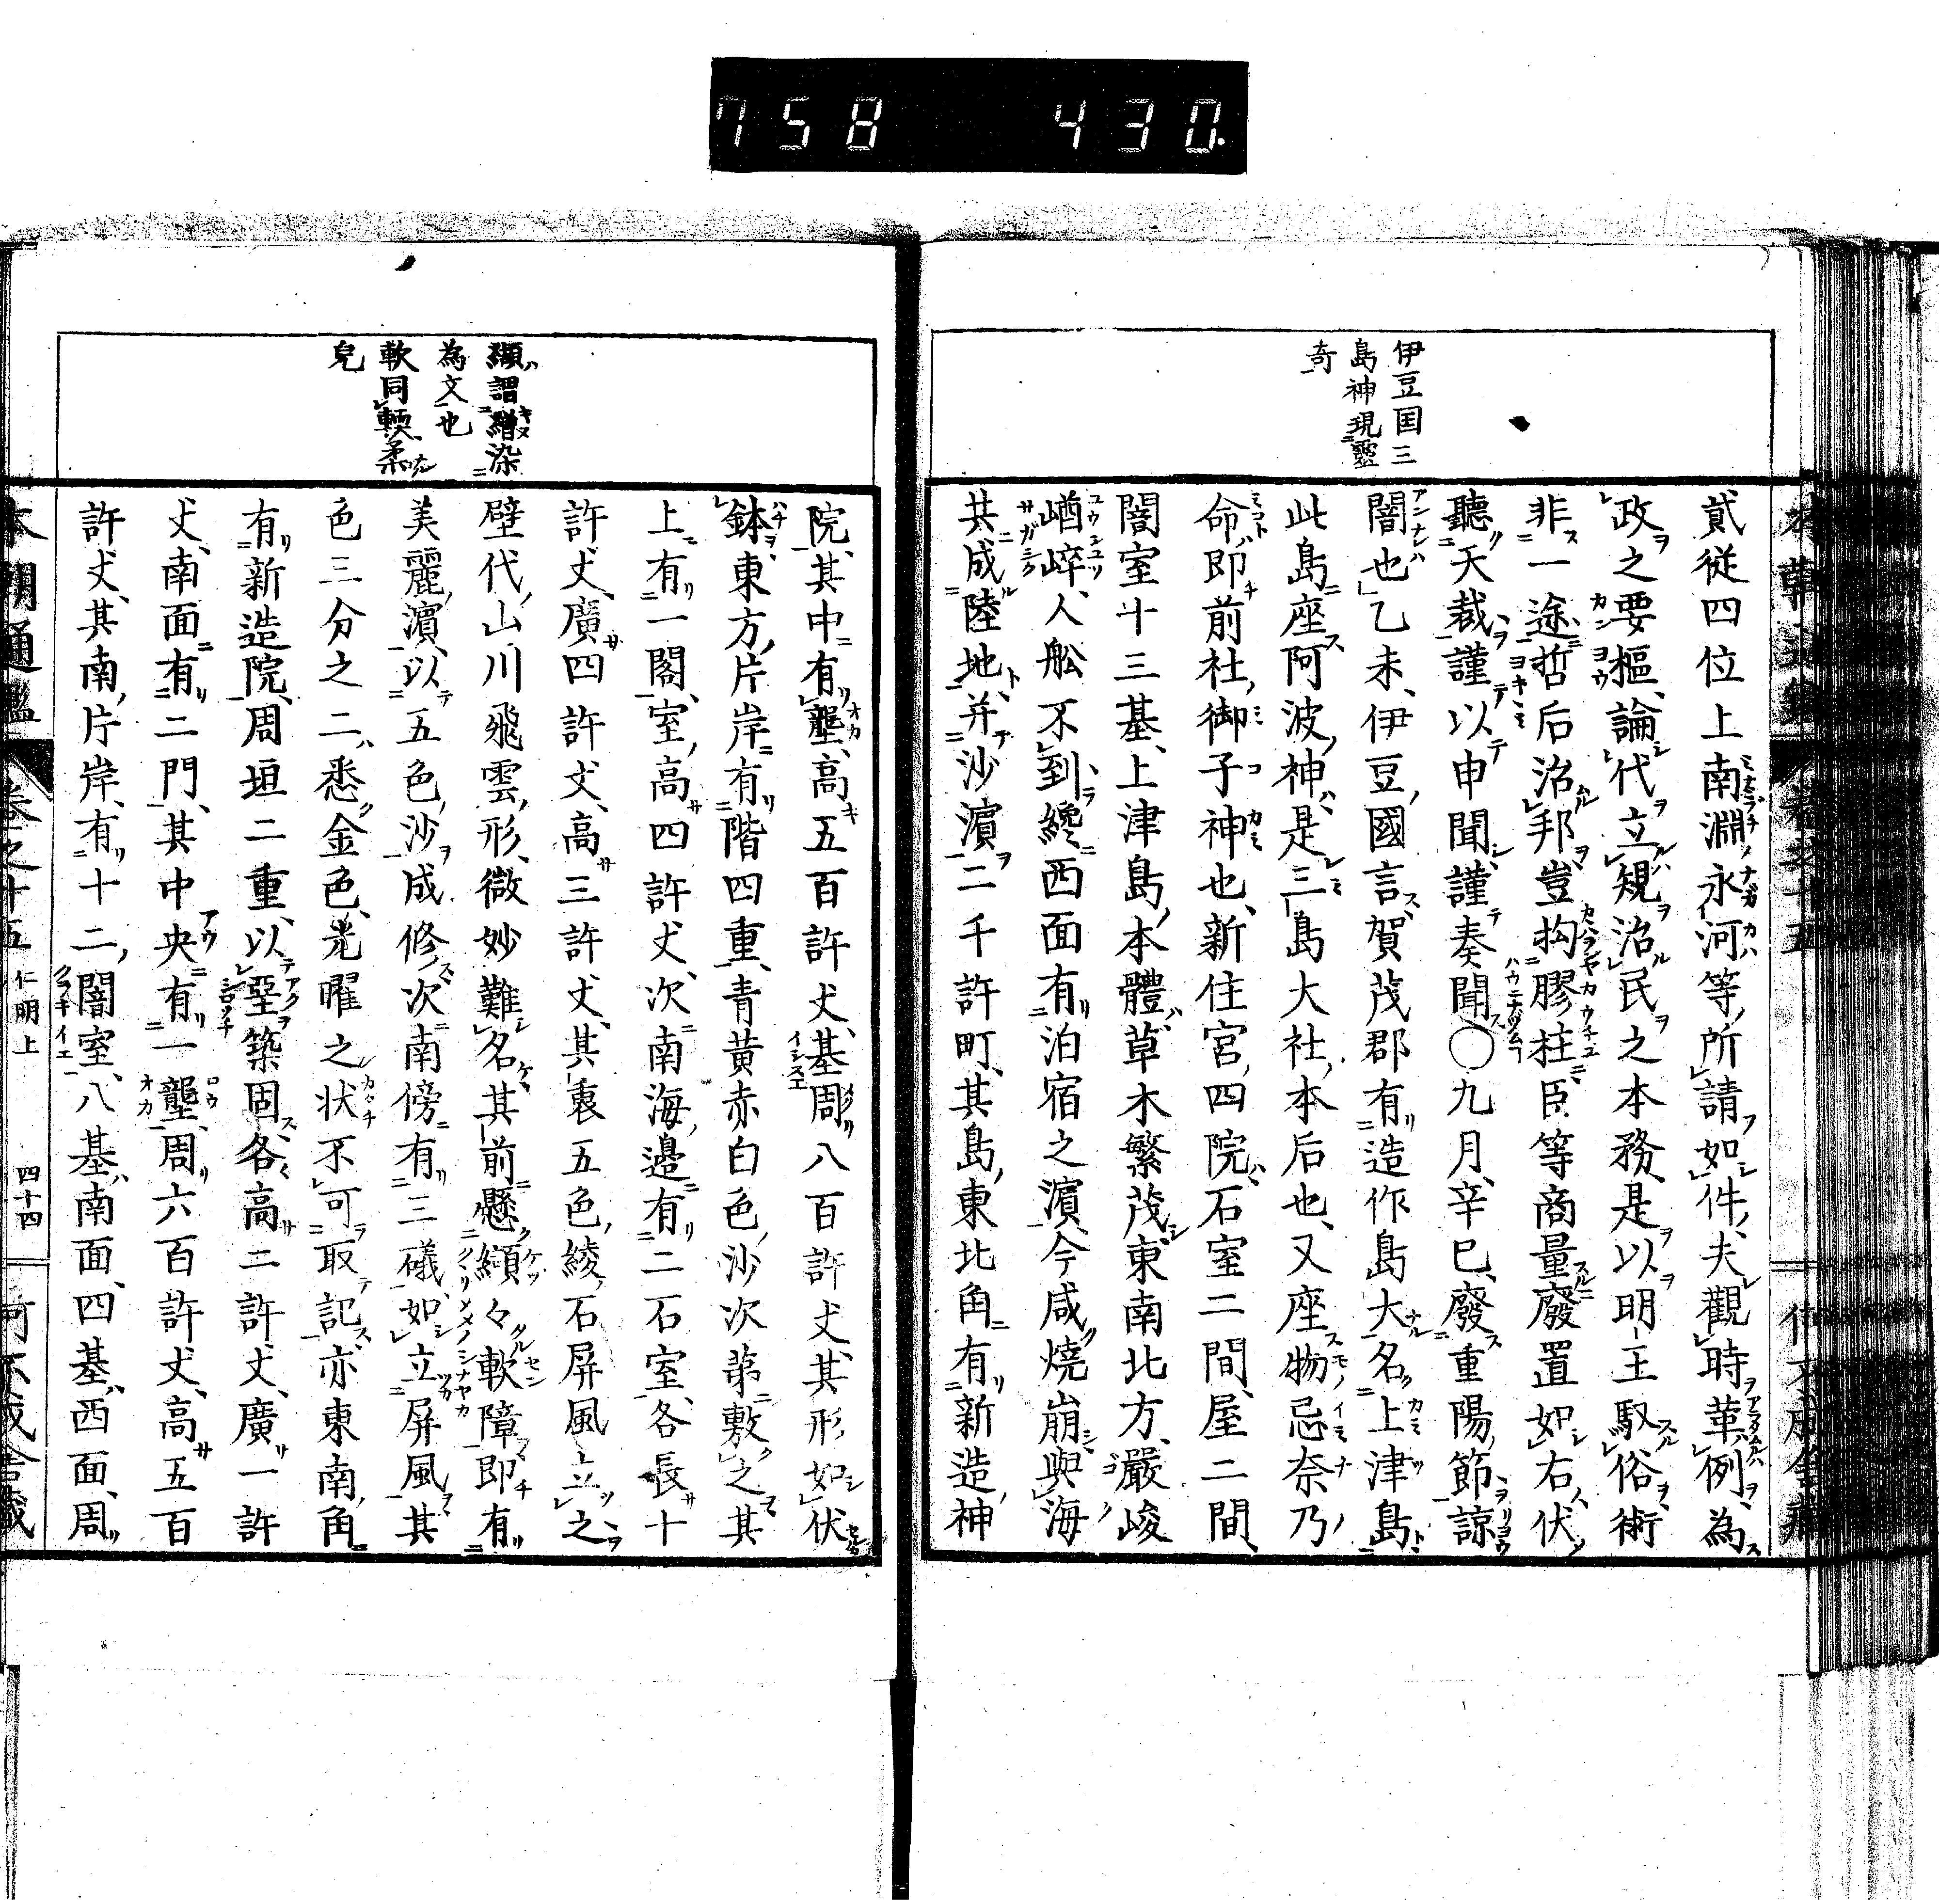 758 430.
伊豆国三
島神現靈
奇
貳従四位上南淵永河等所請如件夫觀時革例為
政之要樞論代立規治民之本務是以明王馭俗術
非一途哲后治邦豈拘膠柱臣等商量廢置如右伏
聽天裁謹以申聞謹奏聞○九月辛巳廢重陽節諒
闇也乙未伊豆國言賀茂郡有造作島大名上津島
此島座阿波神是三島大社本后也又座物忌奈乃
命即前社御子神也新住宮四院石室二間屋二間
闇室十三基上津島本體草木繁茂東南北方嚴峻
崷崒人舩不到纔西面有泊宿之濵今咸燒崩與海
共成陸地并沙濵二千許町其島東北角有新造神
纈謂繒染
為文也
軟同輭柔
皃
院其中有壟高五百許丈基周八百許丈其形如伏
鉢東方片岸有階四重青黃赤白色沙次第敷之其
上有一閣室高四許丈次南海邊有二石室各長十
許丈廣四許丈高三許丈其裏五色綾石屏風立之
壁代山川飛雲形微妙難名其前懸纈々軟障即有
美麗濵以五色沙成修次南傍有三礒如立屏風其
色三分之二悉金色光曜之状不可取記亦東南角
有新造院周垣二重以堊築固各高二許丈廣一許
丈南面有二門其中央有一壟周六百許丈高五百
許丈其南片岸有十二闇室八基南面四基西面周
本朝通鑑 卷之十五 仁明上 四十四